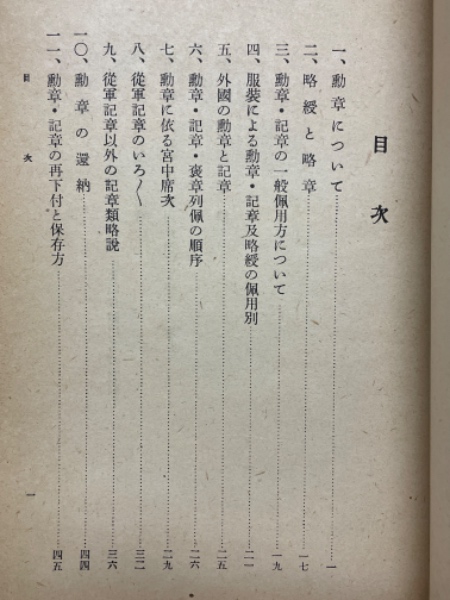 目次
一、勳章について……一
二、略綬と略章……一七
三、勳章・記章の一般佩用方について……一九
四、服裝による勳章・記章及略綬の佩用別……二一
五、外國の勳章と記章……二五
六、勳章・記章・褒章列佩の順序……二六
七、勳章に依る宮中席次……二九
八、從軍記章のいろ〱……三二
九、從軍記章以外の記章類略說……三六
一〇、勳章の還納……四四
一一、勳章・記章の再下付と保存方……四五
目次
一